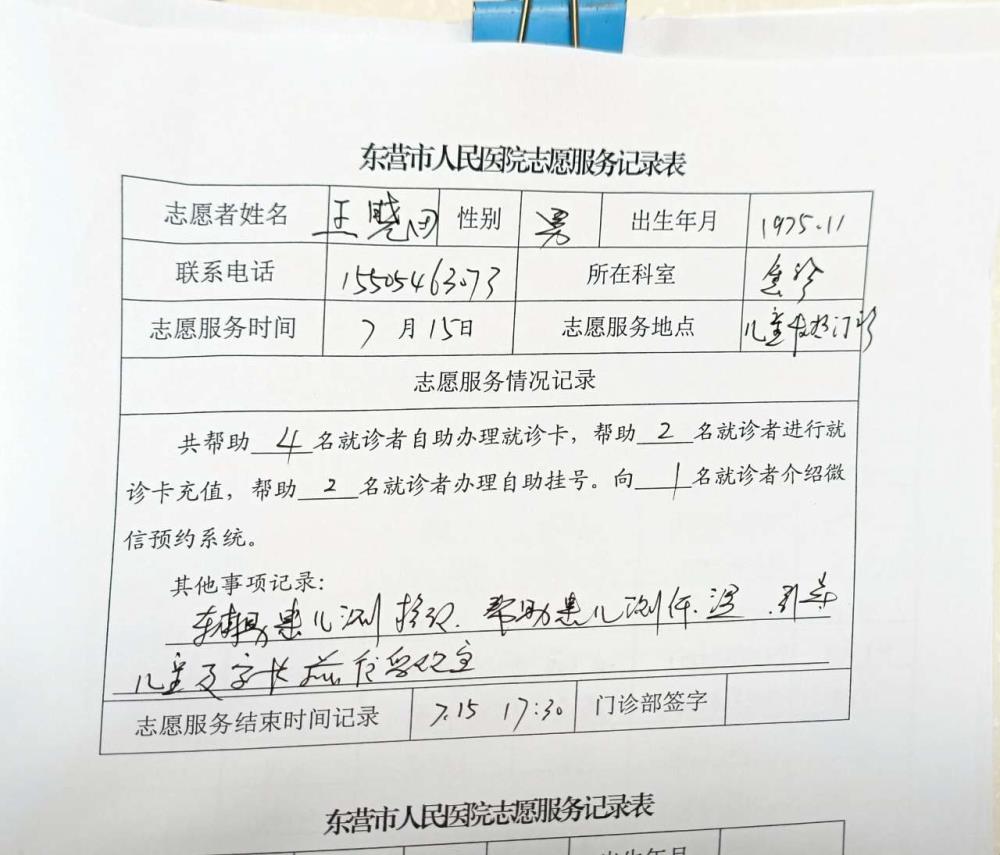 东营市人民医院志愿服务记录表
志愿者姓名 王晓 性别 男 出生年月 1975.11
联系电话 15505463073 所在科室 急诊
志愿服务时间 7月15日 志愿服务地点 儿童发热门诊
志愿服务情况记录
共帮助 4 名就诊者自助办理就诊卡，帮助 2 名就诊者进行就
诊卡充值，帮助 2 名就诊者办理自助挂号。向 1 名就诊者介绍微
信预约系统。
其他事项记录：
患儿测 帮助患儿测体温 引导
儿童及家长
志愿服务结束时间记录 7.15 17:30 门诊部签字
东营市人民医院志愿服务记录表
出生年月